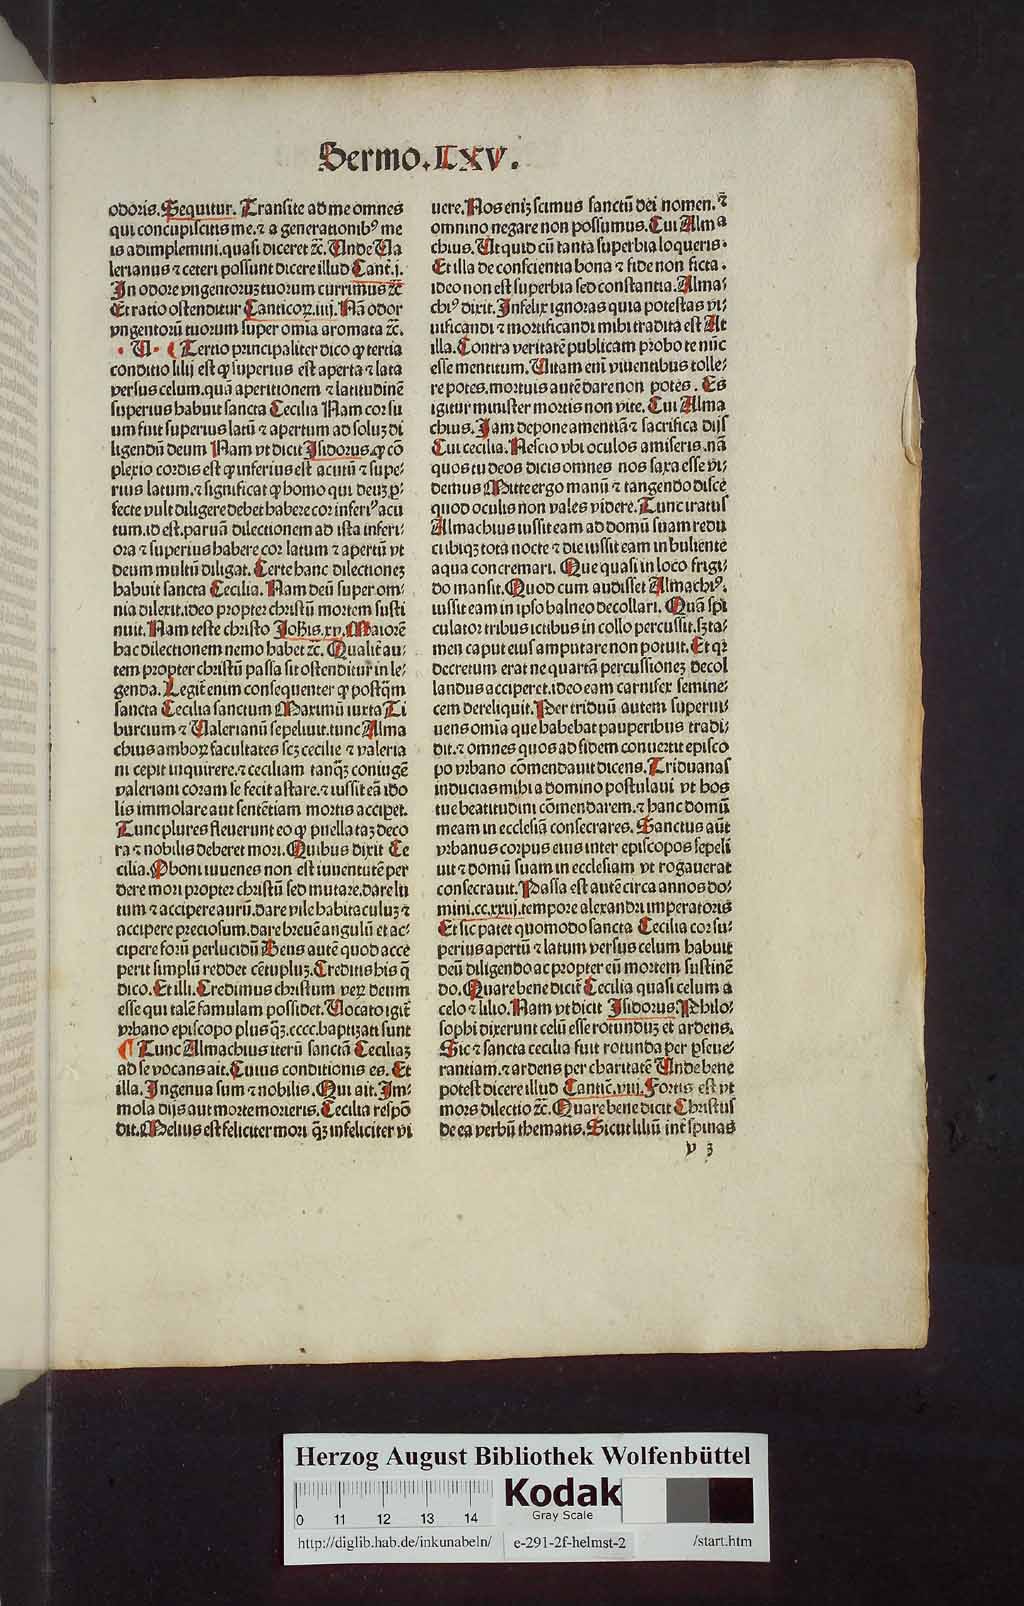 Sermo.LXV.
odoris.Sequitur. Transite ad me omnes
qui concupiscitis me.⁊ a generationibꝰ me
is adimplemini.quasi diceret ⁊c̄. Unde Va
lerianus ⁊ ceteri possunt dicere illud Cant̄.j.
In odore vngentoruꝫ tuorum currimus ⁊c̄
Et ratio ostenditur Canticoꝝ.iiij. Nā odor
vngentorū tuorum super om̄ia aromata ⁊c̄.
V. ¶ Tertio principaliter dico ꝙ tertia
conditio lilij est ꝙ superius est aperta ⁊ lata
versus celum.quā aperitionem ⁊ latitudinē
superius habuit sancta Cecilia Nam cor su
um fuit superius latū ⁊ apertum ad soluꝫ di
ligendū deum Nam vt dicit Isidorus.ꝙ cō
plexio cordis est ꝙ inferius est acutū ⁊ supe⸗
rius latum.⁊ significat ꝙ homo qui deuꝫ ꝑ⸗
fecte vult diligere debet habere cor inferiꝰ acu
tum.id est.paruā dilectionem ad ista inferi⸗
ora ⁊ superius habere cor latum ⁊ apertū vt
deum multū diligat. Certe hanc dilectioneꝫ
habuit sancta Cecilia. Nam deū super om⸗
nia dilexit.ideo propter christū mortem susti
nuit. Nam teste christo Johis.xv. Maiorē
hac dilectionem nemo habet ⁊c̄. Qualit̄ au⸗
tem propter christū passa sit ostenditur in le⸗
genda. Legit̄ enim consequenter ꝙ postq̄m
sancta Cecilia sanctum Maximū iuxta Ti
burcium ⁊ Valerianū sepeliuit.tunc Alma
chius amboꝝ facultates scꝫ cecilie ⁊ valeria
ni cepit inquirere.⁊ ceciliam tanq̄ꝫ coniugē
valeriani coram se fecit astare.⁊ iussit eā ido
lis immolare aut sentētiam mortis accipet.
Tunc plures fleuerunt eo ꝙ puella taꝫ deco
ra ⁊ nobilis deberet mori. Quibus dixit Ce
cilia. O boni iuuenes non est iuuentutē per
dere mori propter christū sed mutare.dare lu
tum ⁊ accipere aurū.dare vile habitaculuꝫ ⁊
accipere preciosum.dare breuē angulū ⁊ ac⸗
cipere forū perlucidū Deus autē quod acce
perit simplū reddet cētupluꝫ. Creditis his q̄
dico. Et illi. Credimus christum veꝝ deum
esse qui talē famulam possidet. Vocato igit̄
vrbano episcopo plus q̄ꝫ.cccc.baptizati sunt
¶ Tunc Almachius iterū sanctā Ceciliaꝫ
ad se vocans ait. Cuius conditionis es. Et
illa. Ingenua sum ⁊ nobilis. Qui ait. Im⸗
mola dijs aut morte morieris. Cecilia respō
dit. Melius est feliciter mori q̄ꝫ infeliciter vi
uere. Nos eniꝫ scimus sanctū dei nomen.⁊
omnino negare non possumus. Cui Alma
chius. Ut quid cū tanta superbia loqueris.
Et illa de conscientia bona ⁊ fide non ficta.
ideo non est superbia sed constantia. Alma⸗
chiꝰ dixit. Infelix ignoras quia potestas vi⸗
uificandi ⁊ mortificandi mihi tradita est At
illa. Contra veritatē publicam probo te nūc
esse mentitum. Vitam enī viuentibus tolle⸗
re potes.mortuis autē dare non potes. Es
igitur minister mortis non vite. Cui Alma
chius. Iam depone amentiā ⁊ sacrifica dijs
Cui cecilia. Nescio vbi oculos amiseris.nā
quos tu deos dicis omnes nos saxa esse vi⸗
demus Mitte ergo manū ⁊ tangendo disce
quod oculis non vales videre. Tunc iratus
Almachius iussit eam ad domū suam redu
ci ibiqꝫ tota nocte ⁊ die iussit eam in buliente
aqua concremari. Que quasi in loco frigi⸗
do mansit. Quod cum audisset Almachiꝰ.
iussit eam in ipso balneo decollari. Quā spi
culator tribus ictibus in collo percussit.sꝫ ta⸗
men caput eius amputare non potuit. Et qꝛ
decretum erat ne quartā percussioneꝫ decol
landus acciperet.ideo eam carnifex semine⸗
cem dereliquit. Per triduū autem superui⸗
uens om̄ia que habebat pauperibus tradi⸗
dit.⁊ omnes quos ad fidem conuertit episco
po vrbano cōmendauit dicens. Triduanas
inducias mihi a domino postulaui vt hos
tue beatitudini cōmendarem.⁊ hanc domū
meam in ecclesiā consecrares. Sanctus aūt
vrbanus corpus eius inter episcopos sepeli
uit ⁊ domū suam in ecclesiam vt rogauerat
consecrauit. Passa est autē circa annos do⸗
mini.cc.xxiij.tempore alexandri imperatoris
Et sic patet quomodo sancta Cecilia cor su⸗
perius apertū ⁊ latum versus celum habuit
deū diligendo ac propter eū mortem sustinē
do. Quare bene dicit̄ Cecilia quasi celum a
celo ⁊ lilio. Nam vt dicit Isidorus. Philo⸗
sophi dixerunt celū esse rotunduꝫ et ardens.
Sic ⁊ sancta cecilia fuit rotunda per ꝑseue⸗
rantiam.⁊ ardens per charitatē Unde bene
potest dicere illud Cantic̄.viij. Fortis est vt
mors dilectio ⁊c̄. Quare bene dicit Christus
de ea verbū thematis. Sicut liliū int̄ spinas
v 3
Herzog August Bibliothek Wolfenbüttel
0 11 12 13 14
Kodak
Gray Scale
http://diglib.hab.de/inkunabeln/ e-291-2f-helmst-2 /start.htm